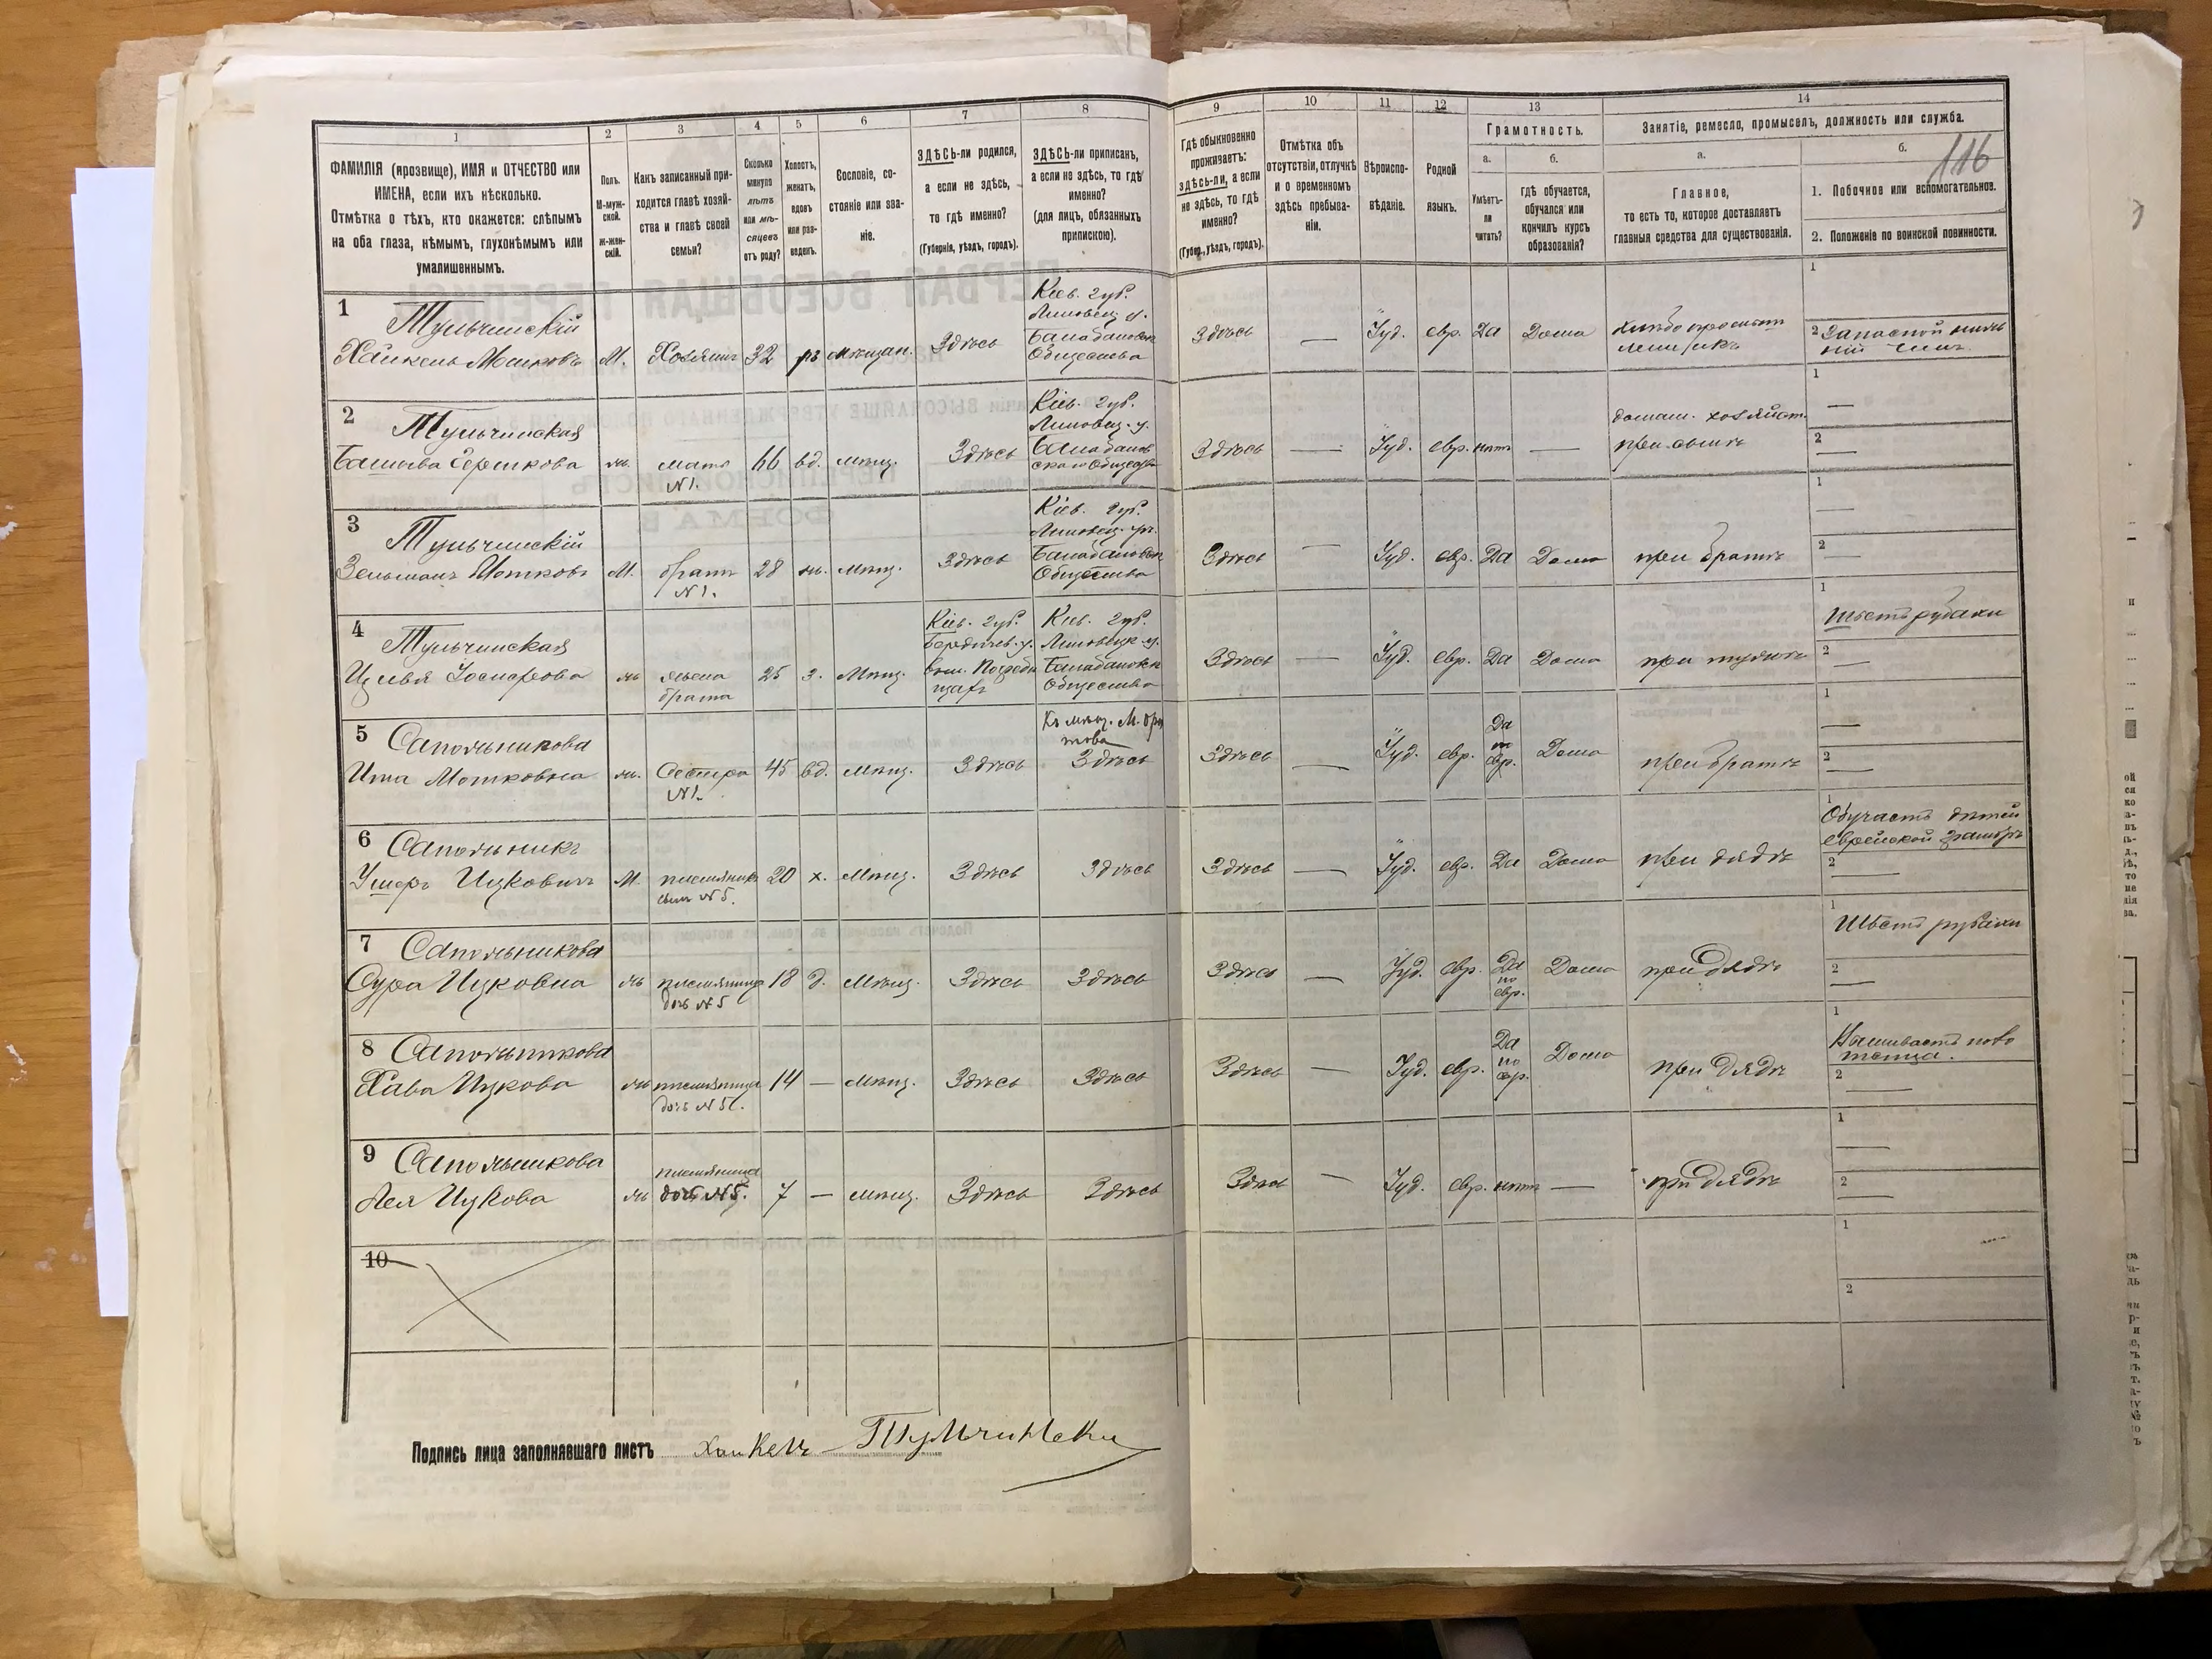 1
2
3
4
5
6
7
8
ФАМИЛІЯ (прозвище), ИМЯ и ОТЧЕСТВО или
ИМЕНА, если ихъ нѣсколько.
Отмѣтка о тѣхъ, кто окажется: слѣпымъ
на оба глаза, нѣмымъ, глухонѣмымъ или
умалишеннымъ.
Полъ.
М-муж-
ской.
Ж-жен-
скій.
Какъ записанный при-
ходится главѣ хозяй-
ства и главѣ своей
семьи?
Сколько
минуло
лѣтъ
или мѣ-
сяцевъ
отъ роду?
Холостъ,
женатъ,
вдовъ
или раз-
веденъ.
Сословіе, со-
стояніе или зва-
ніе.
ЗДѢСЬ-ли родился,
а если не здѣсь,
то гдѣ именно?
(Губернія, уѣздъ, городъ).
ЗДѢСЬ-ли приписанъ,
а если не здѣсь, то гдѣ
именно?
(для лицъ, обязанныхъ
припискою).
9
10
11
12
13
14
Гдѣ обыкновенно
проживаетъ:
здѣсь-ли, а если
не здѣсь, то гдѣ
именно?
(Губер., уѣздъ, городъ).
Отмѣтка объ
отсутствіи, отлучкѣ
и о временномъ
здѣсь пребыва-
ніи.
Вѣроиспо-
вѣданіе.
Родной
языкъ.
Грамотность.
а.
б.
Умѣетъ-
ли
читать?
гдѣ обучается,
обучался или
кончилъ курсъ
образованія?
Занятіе, ремесло, промыселъ, должность или служба.
а.
б.
116
Главное,
то есть то, которое доставляетъ
главныя средства для существованія.
1. Побочное или вспомогательное.
2. Положеніе по воинской повинности.
1
Тульчинскій
Хайкель Мошковъ
М.
Хозяинъ
32
мѣщан.
Здѣсь
Кіев. губ.
Липовец. у.
Балабановск
Общества
Здѣсь
—
Іуд.
евр.
Да
Дома
1
2 Запасной ниж
ній чинъ
2
Тульчинская
Гершкова
ж.
мать
N 1.
66
вд.
мѣщ.
Здѣсь
Кіев. губ.
Липовец. у.
Балабанов
скаго Общества
Здѣсь
—
Іуд.
евр.
нѣтъ
—
домаш. хозяйст.
при сынѣ
1
—
2
—
3
Тульчинскій
Зельманъ Мошковъ
М.
братъ
N 1.
28
ж.
мѣщ.
Здѣсь
Кіев. губ.
Липовец. у.
Балабановск
Общества
Здѣсь
—
Іуд.
евр.
Да
Дома
при братѣ
1
—
2
—
4
Тульчинская
Цивья
ж
жена
брата
25
з.
Мѣщ.
Кіев. губ.
Бердичев. у.
Погреби
щахъ
Кіев. губ.
Липовецк. у.
Балабановск
Общества
Здѣсь
—
Іуд.
евр.
Да
Дома
при мужѣ
1
Шьетъ рубахи
2
—
5
Сапожникова
Ита Мошковна
ж.
Сестра
N 1.
45
вд.
мѣщ.
Здѣсь
Къ мѣщ. М.
Здѣсь
Здѣсь
—
Іуд.
евр.
Да
по
евр.
Дома
при братѣ
1
—
2
—
6
Сапожникъ
Ушеръ Ицковичъ
М.
племяникъ
сынъ N 5.
20
х.
мѣщ.
Здѣсь
Здѣсь
Здѣсь
—
Іуд.
евр.
Да
Дома
при дядѣ
1
Обучаетъ дѣтей
еврейской грамотѣ
2
—
7
Сапожникова
Сура Ицковна
ж
племянница
дочь N 5
18
д.
Мѣщ.
Здѣсь
Здѣсь
Здѣсь
—
Іуд.
евр.
Да
по
евр.
Дома
при дядѣ
1
Шьетъ рубахи
2
—
8
Сапожникова
Хава Ицкова
ж
племянница
дочь N 5.
14
—
мѣщ.
Здѣсь
Здѣсь
Здѣсь
—
Іуд.
евр.
Да
по
евр.
Дома
при дядѣ
1
Вышиваетъ поло
тенца.
2
—
9
Сапожникова
Лея Ицкова
ж
племянница
дочь N 5.
7
—
мѣщ.
Здѣсь
Здѣсь
Здѣсь
—
Іуд.
евр.
нѣтъ
—
при дядѣ
1
—
2
—
10
1
2
Подпись лица заполнявшаго листъ Хайкель Тульчински